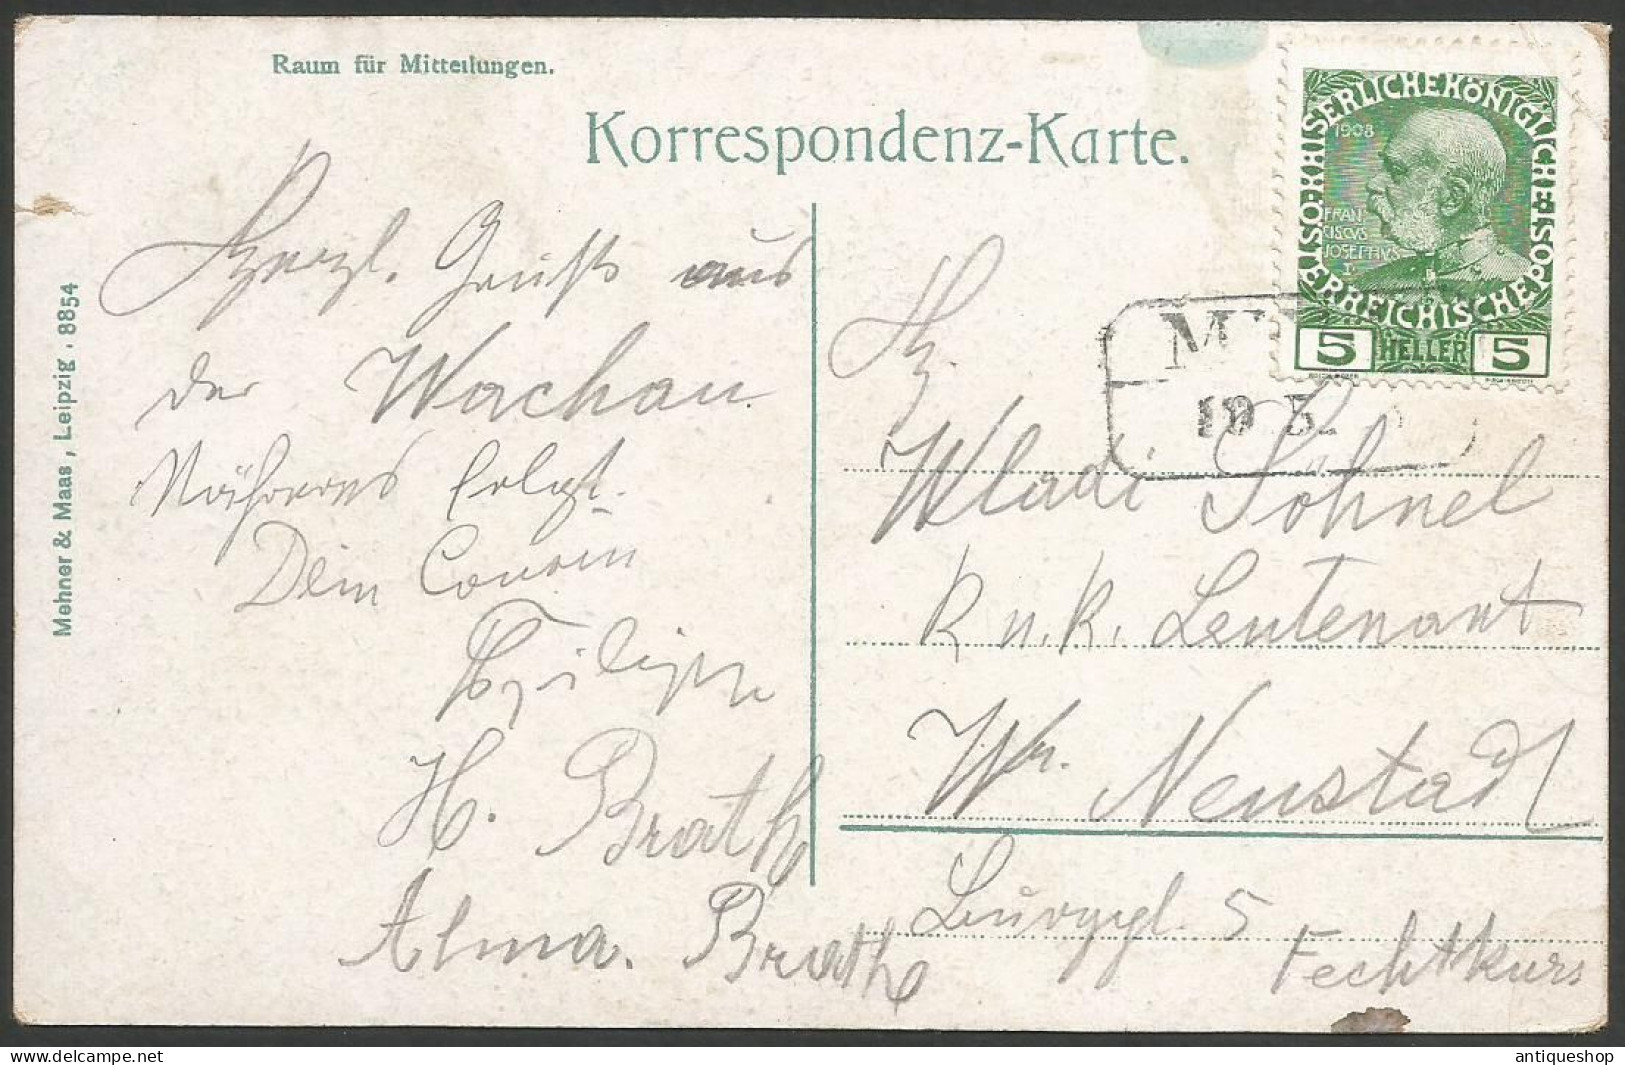 Raum für Mitteilungen.
Korrespondenz-Karte.
KAISERLICHE KÖNIGLICHE ÖSTERREICHISCHE POST
1908
FRAN
CISCVS
JOSEPHVS
I
5 HELLER 5
19 5
Mehner & Maas, Leipzig. 8854
Herzl. Grüße aus
der Wachau.
Näheres folgt.
Dein Cousin
H. Brath
Alma. Brath
Wladi Sohnel
K u. K. Leutenant
Wr. Neustadt
5
Fechtkurs
www.delcampe.net
antiqueshop